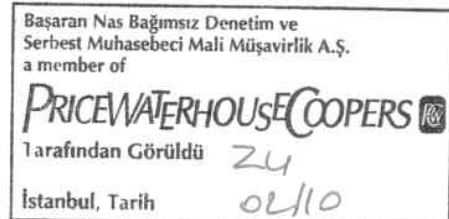 Başaran Nas Bağımsız Denetim ve
Serbest Muhasebeci Mali Müşavirlik A.Ş.
a member of
PRICEWATERHOUSECOOPERS
Tarafından Görüldü ZU
İstanbul, Tarih 02/10